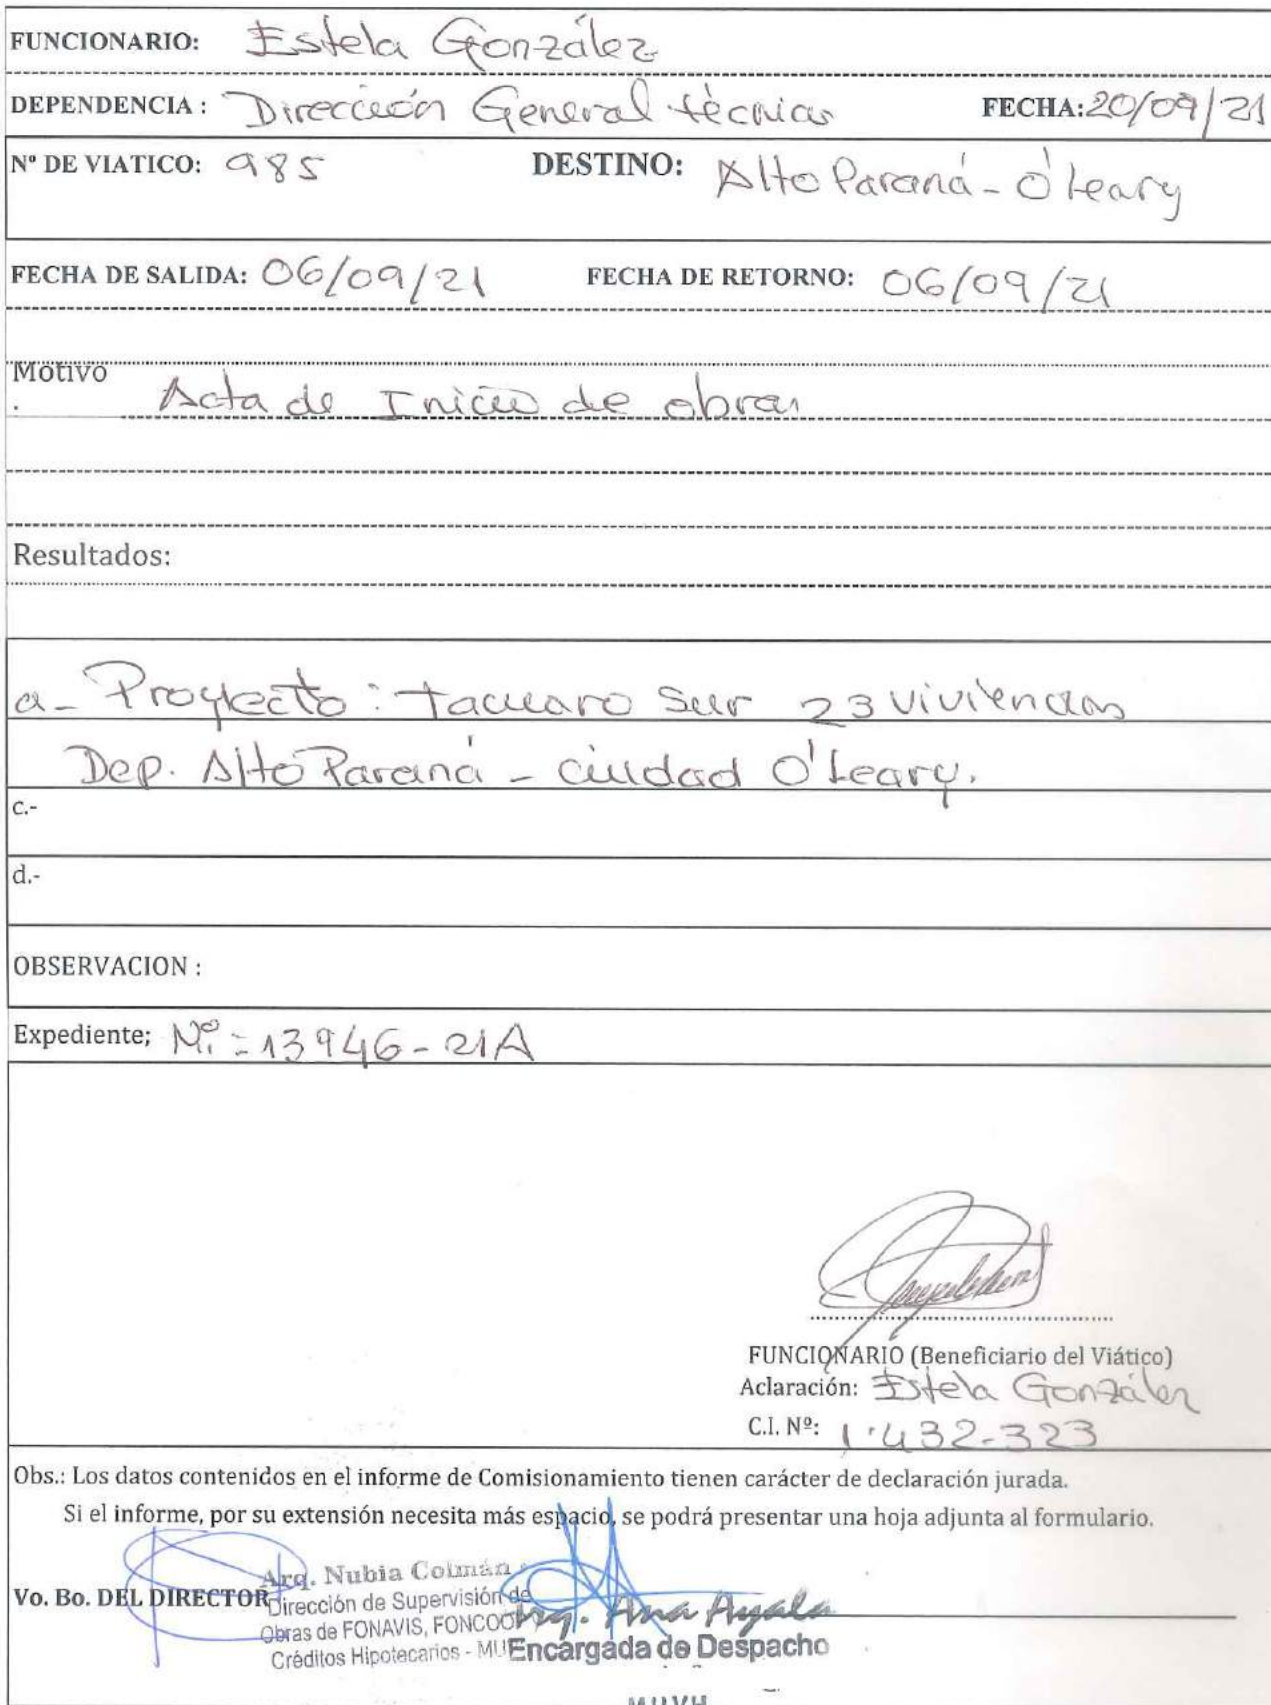 FUNCIONARIO: Estela González
DEPENDENCIA : Dirección General técnica FECHA: 20/09/21
Nº DE VIATICO: 985 DESTINO: Alto Paraná - O'Leary
FECHA DE SALIDA: 06/09/21 FECHA DE RETORNO: 06/09/21
Motivo
. Acta de Inicio de obras
Resultados:
a- Proyecto: tacuaro Sur 23 viviendas
Dep. Alto Paraná - ciudad O'Leary.
c.-
d.-
OBSERVACION :
Expediente; Nº: 13946-21A
FUNCIONARIO (Beneficiario del Viático)
Aclaración: Estela González
C.I. Nº: 1.432-323
Obs.: Los datos contenidos en el informe de Comisionamiento tienen carácter de declaración jurada.
Si el informe, por su extensión necesita más espacio, se podrá presentar una hoja adjunta al formulario.
Arq. Nubia Colmán
Vo. Bo. DEL DIRECTOR Dirección de Supervisión de
Obras de FONAVIS, Arq. Ana Ayala
Créditos Hipotecarios - Encargada de Despacho